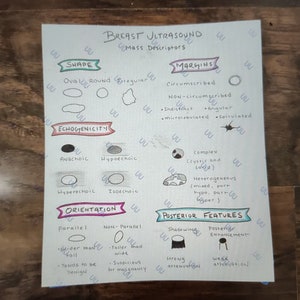 BREAST ULTRASOUND
MASS DESCRIPTORS
SHAPE
Oval Round Irregular
MARGINS
CIRCUMSCRIBED
NON-CIRCUMSCRIBED
•Indistinct •Angular
•microlobulated •Spiculated
ECHOGENICITY
Anechoic Hypoechoic
Complex
(cystic and
solid)
Hyperechoic Isoechoic
Heterogeneous
ORIENTATION
Parallel Non-Parallel
-Wider than
tall
-Taller than
wide
-Tends to be
benign
-Suspicious
for malignancy
POSTERIOR FEATURES
Shadowing
Posterior
Enhancement
Strong
attenuation
Weak
attenuation